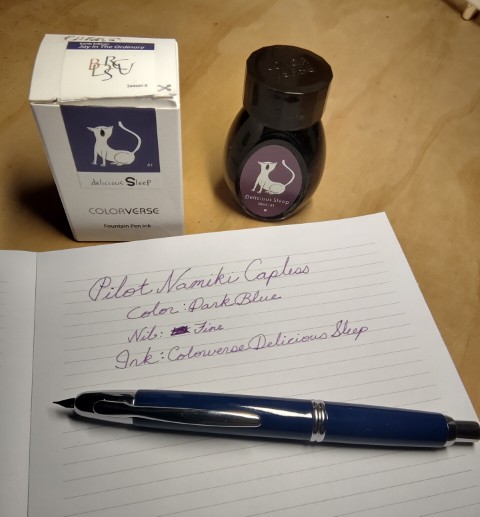 Joy In The Ordinary
Season 6
#1
delicious Sleep
COLORVERSE
Fountain Pen Ink
Delicious Sleep
Pilot Namiki Capless
Color: Dark Blue
Nib: Fine
Ink: Colorverse Delicious Sleep